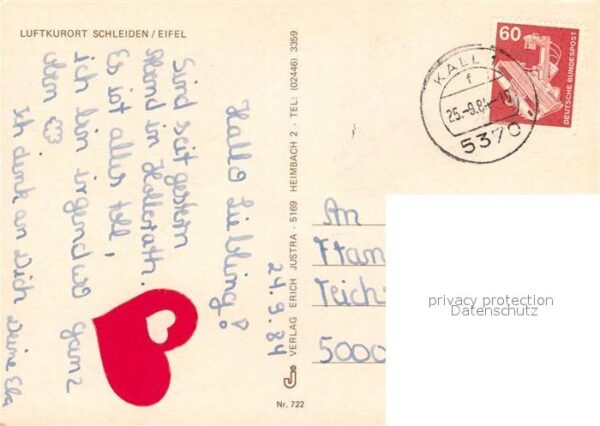 LUFTKURORT SCHLEIDEN / EIFEL
Hallo Liebling!
24.9.84
Sind seit gestern
Abend in Hollerath.
Es ist alles toll,
ich bin irgendwo ganz
oben
Ich denk an Dich
Deine
VERLAG ERICH JUSTRA · 5169 HEIMBACH 2 · TEL: (02446) 3359
Nr. 722
60
DEUTSCHE BUNDESPOST
KALL 1
f
25.-9.84
5370
An
Teich
5000
privacy protection
Datenschutz